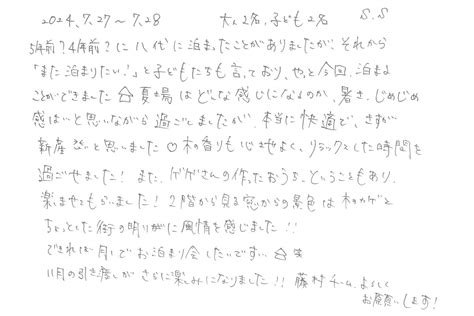 2024.7.27〜7.28 大人2名、子ども2名 S.S
5年前?4年前?に八代に泊まったことがありましたが、それから
「また泊まりたい!」と子どもたちも言っており、やっと今回、泊まる
ことができました 夏場はどんな感じになるのか、暑さ、じめじめ
感はいと思いながら過ごしましたが、本当に快適で、さすが
新産 と思いました♡木の香りも心地よく、リラックスした時間を
過ごせました!また、ゲゲさんの作ったおうち、ということもあり、
楽しませてもらいました!2階から見る窓からの景色は木のカゲと
ちょっとした街の明りがに風情を感じました!!
できれば月1でお泊まり会したいです。笑
11月の引き渡しがさらに楽しみになりました!!藤村チーム、よろしく
お願いします!